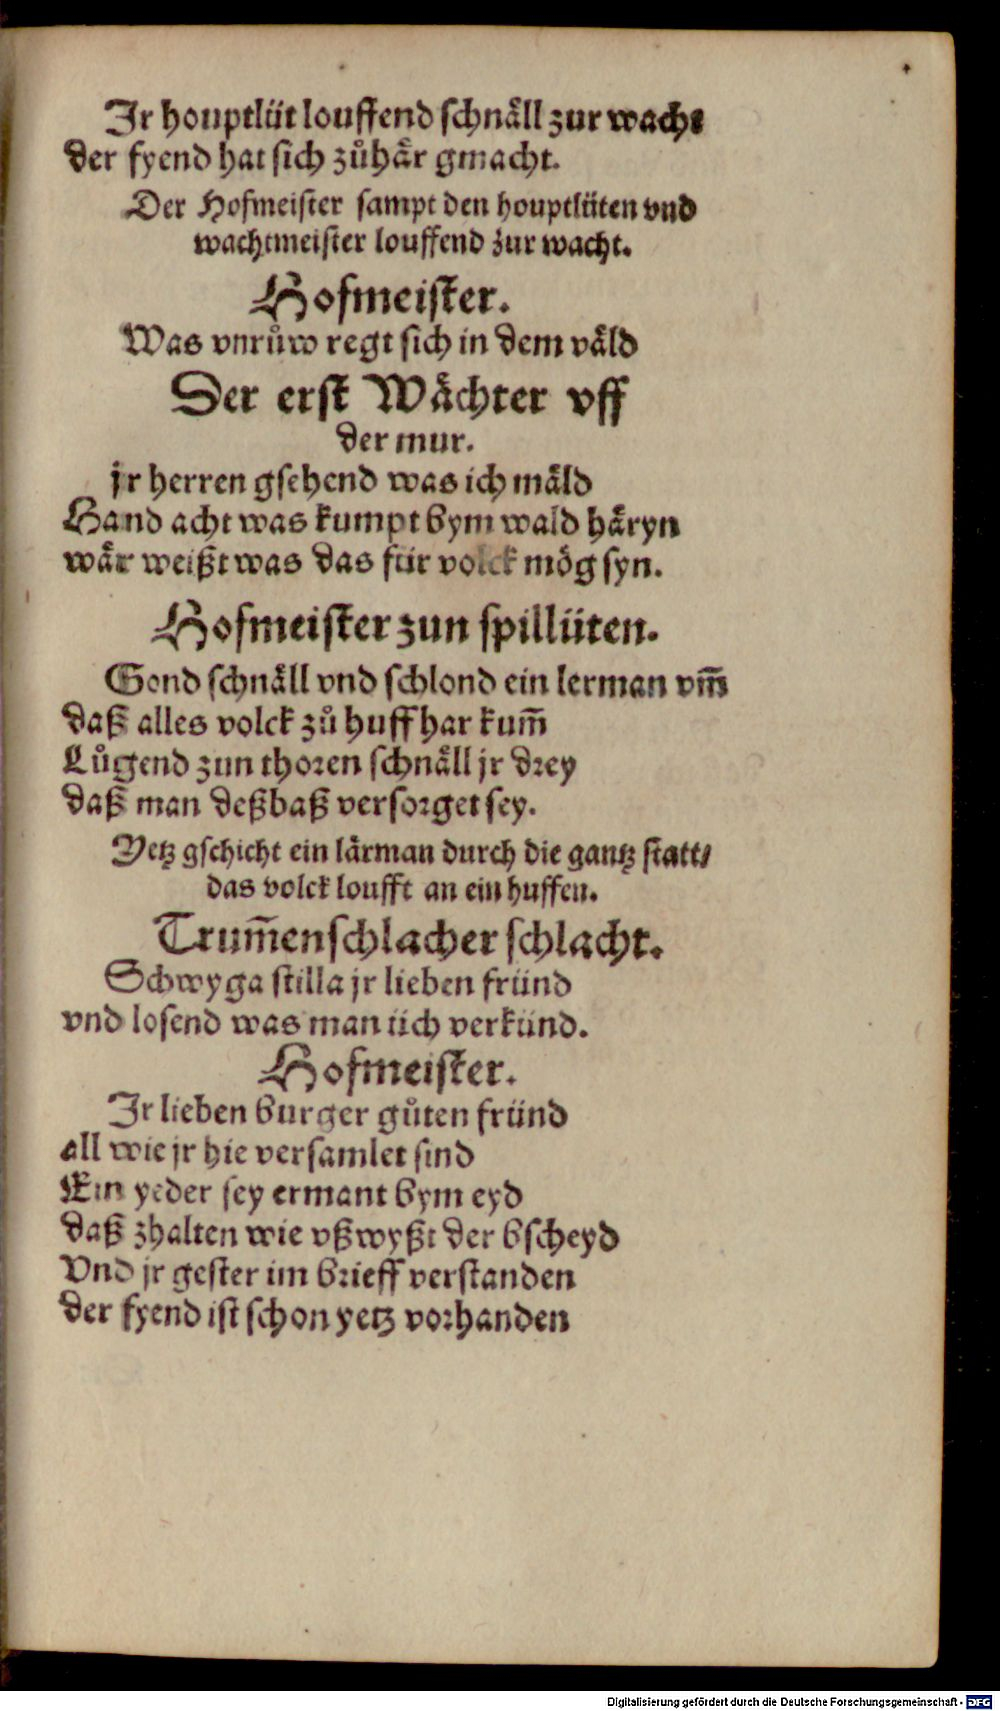 Jr houptlüt louffend schnäll zur wacht
der fyend hat sich zůhär gmacht.
Der Hofmeister sampt den houptlüten vnd
wachtmeister louffend zur wacht.
Hofmeister.
Was vnrůw regt sich in dem väld
Der erst Wächter vff
der mur.
jr herren gsehend was ich mäld
Hand acht was kumpt bym wald häryn
wär weißt was das für volck mög syn.
Hofmeister zun spillüten.
Gond schnäll vnd schlond ein lerman vm̃
daß alles volck zů huff har kum̃
Lůgend zun thoren schnäll jr drey
daß man deßbaß versorget sey.
Yetz gschicht ein lärman durch die gantz statt/
das volck loufft an ein huffen.
Trum̃enschlacher schlacht.
Schwyga stilla jr lieben fründ
vnd losend was man üch verkünd.
Hofmeister.
Jr lieben burger gůten fründ
all wie jr hie versamlet sind
Ein yeder sey ermant bym eyd
daß zhalten wie vßwyßt der bscheyd
Vnd jr gester im brieff verstanden
der fyend ist schon yetz vorhanden
Digitalisierung gefördert durch die Deutsche Forschungsgemeinschaft - DFG